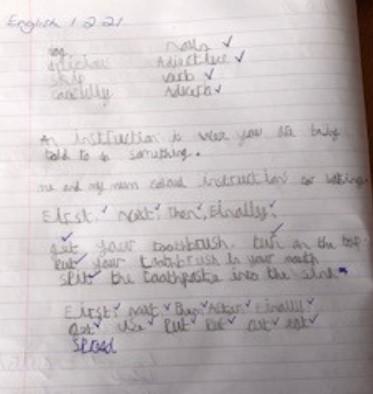 English 1 2 21
Noun
Adjective
skip Verb
carefully Adverb
An instruction is wen you are being
told to do something.
me and my mum instructions for
First, next, Then, Finally,
get your toothbrush. turn on the tap
Put your toothbrush in your
spit the toothpaste into the sink
First next then After Finally
Get use Put Put cut eat
spread